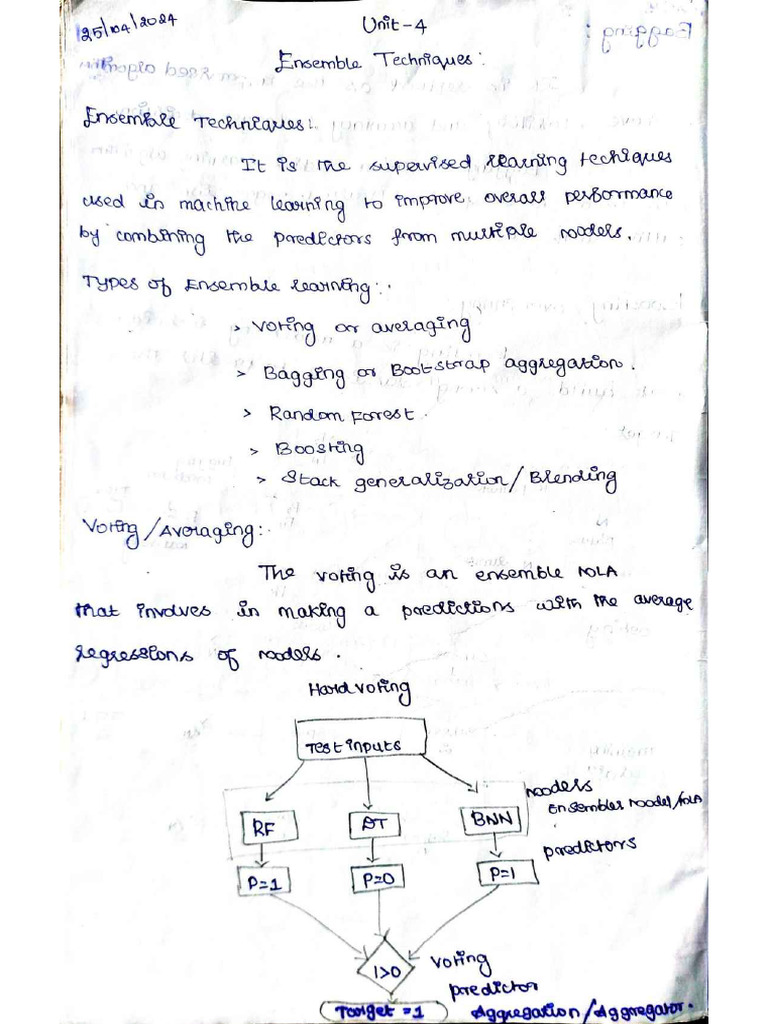 25/04/2024
Unit-4
Ensemble Techniques:
Ensemble Techniques:.
It is the supervised learning techiques
used in machine learning to improve overall performance
by combining the predictors from multiple models.
Types of Ensemble learning:.
> Voting or averaging
> Bagging or Bootstrap aggregation.
> Random Forest.
> Boosting
> Stack generalization/Blending
Voting/Averaging:.
The voting is an ensemble MLA
that involves in making a predictions with the average
regressions of models.
Hard voting
Test inputs
models
Ensembles model/MLA
RF
DT
BNN
predictors
P=1
P=0
P=1
1>0
Voting
predictor
Target =1
Aggregation/Aggregator.